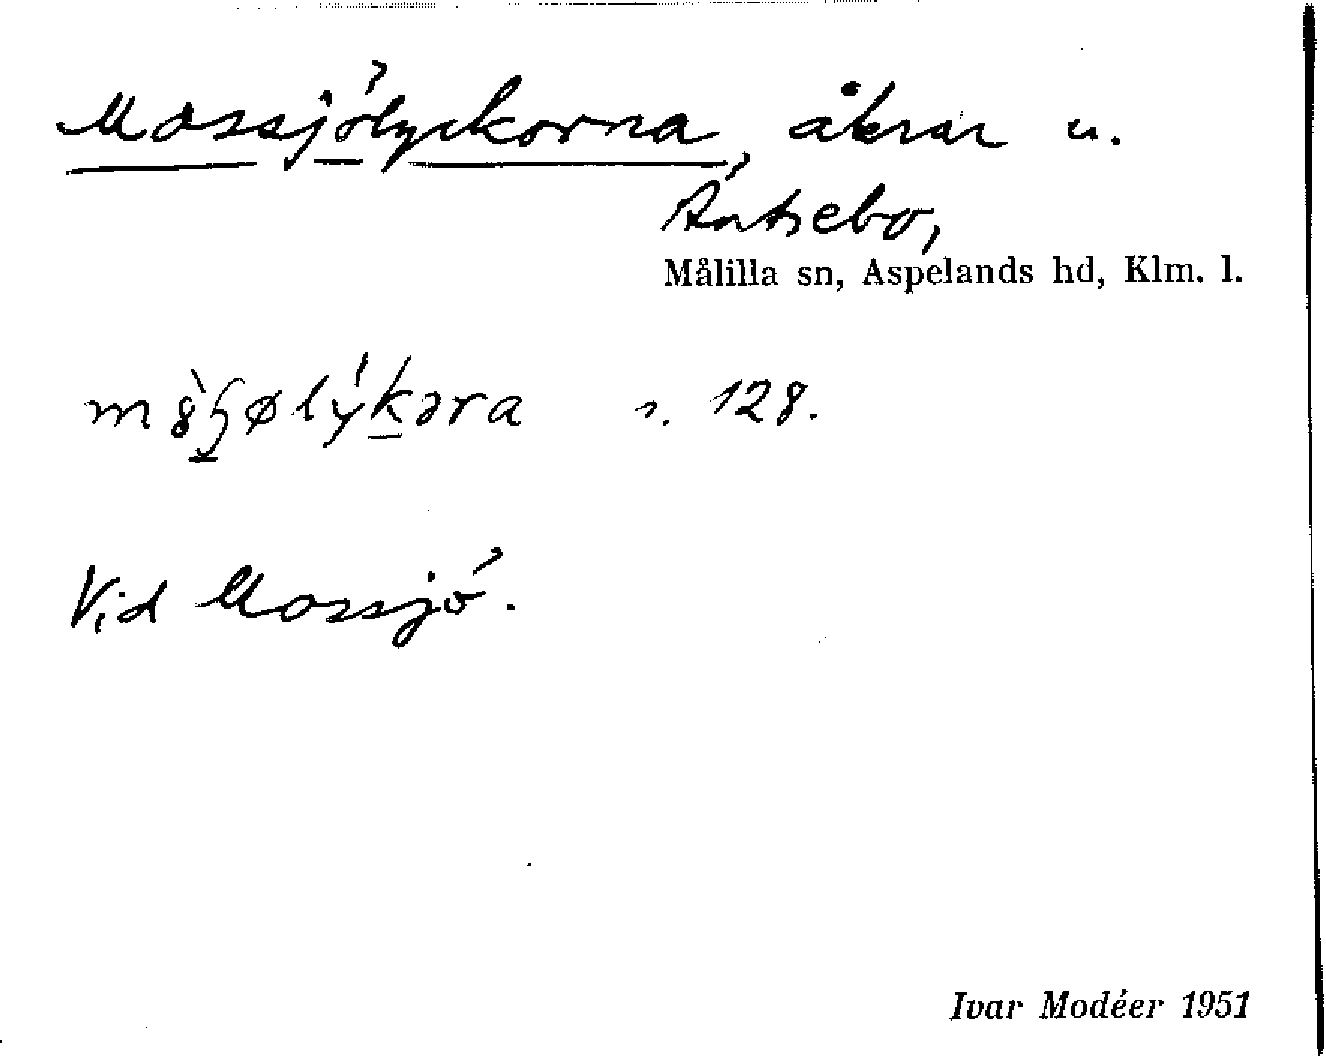 Mossjölyckorna, åkrar u.
Äntsebo,
Målilla sn, Aspelands hd, Klm. l.
128.
Vid Mossjö.
Ivar Modéer 1951